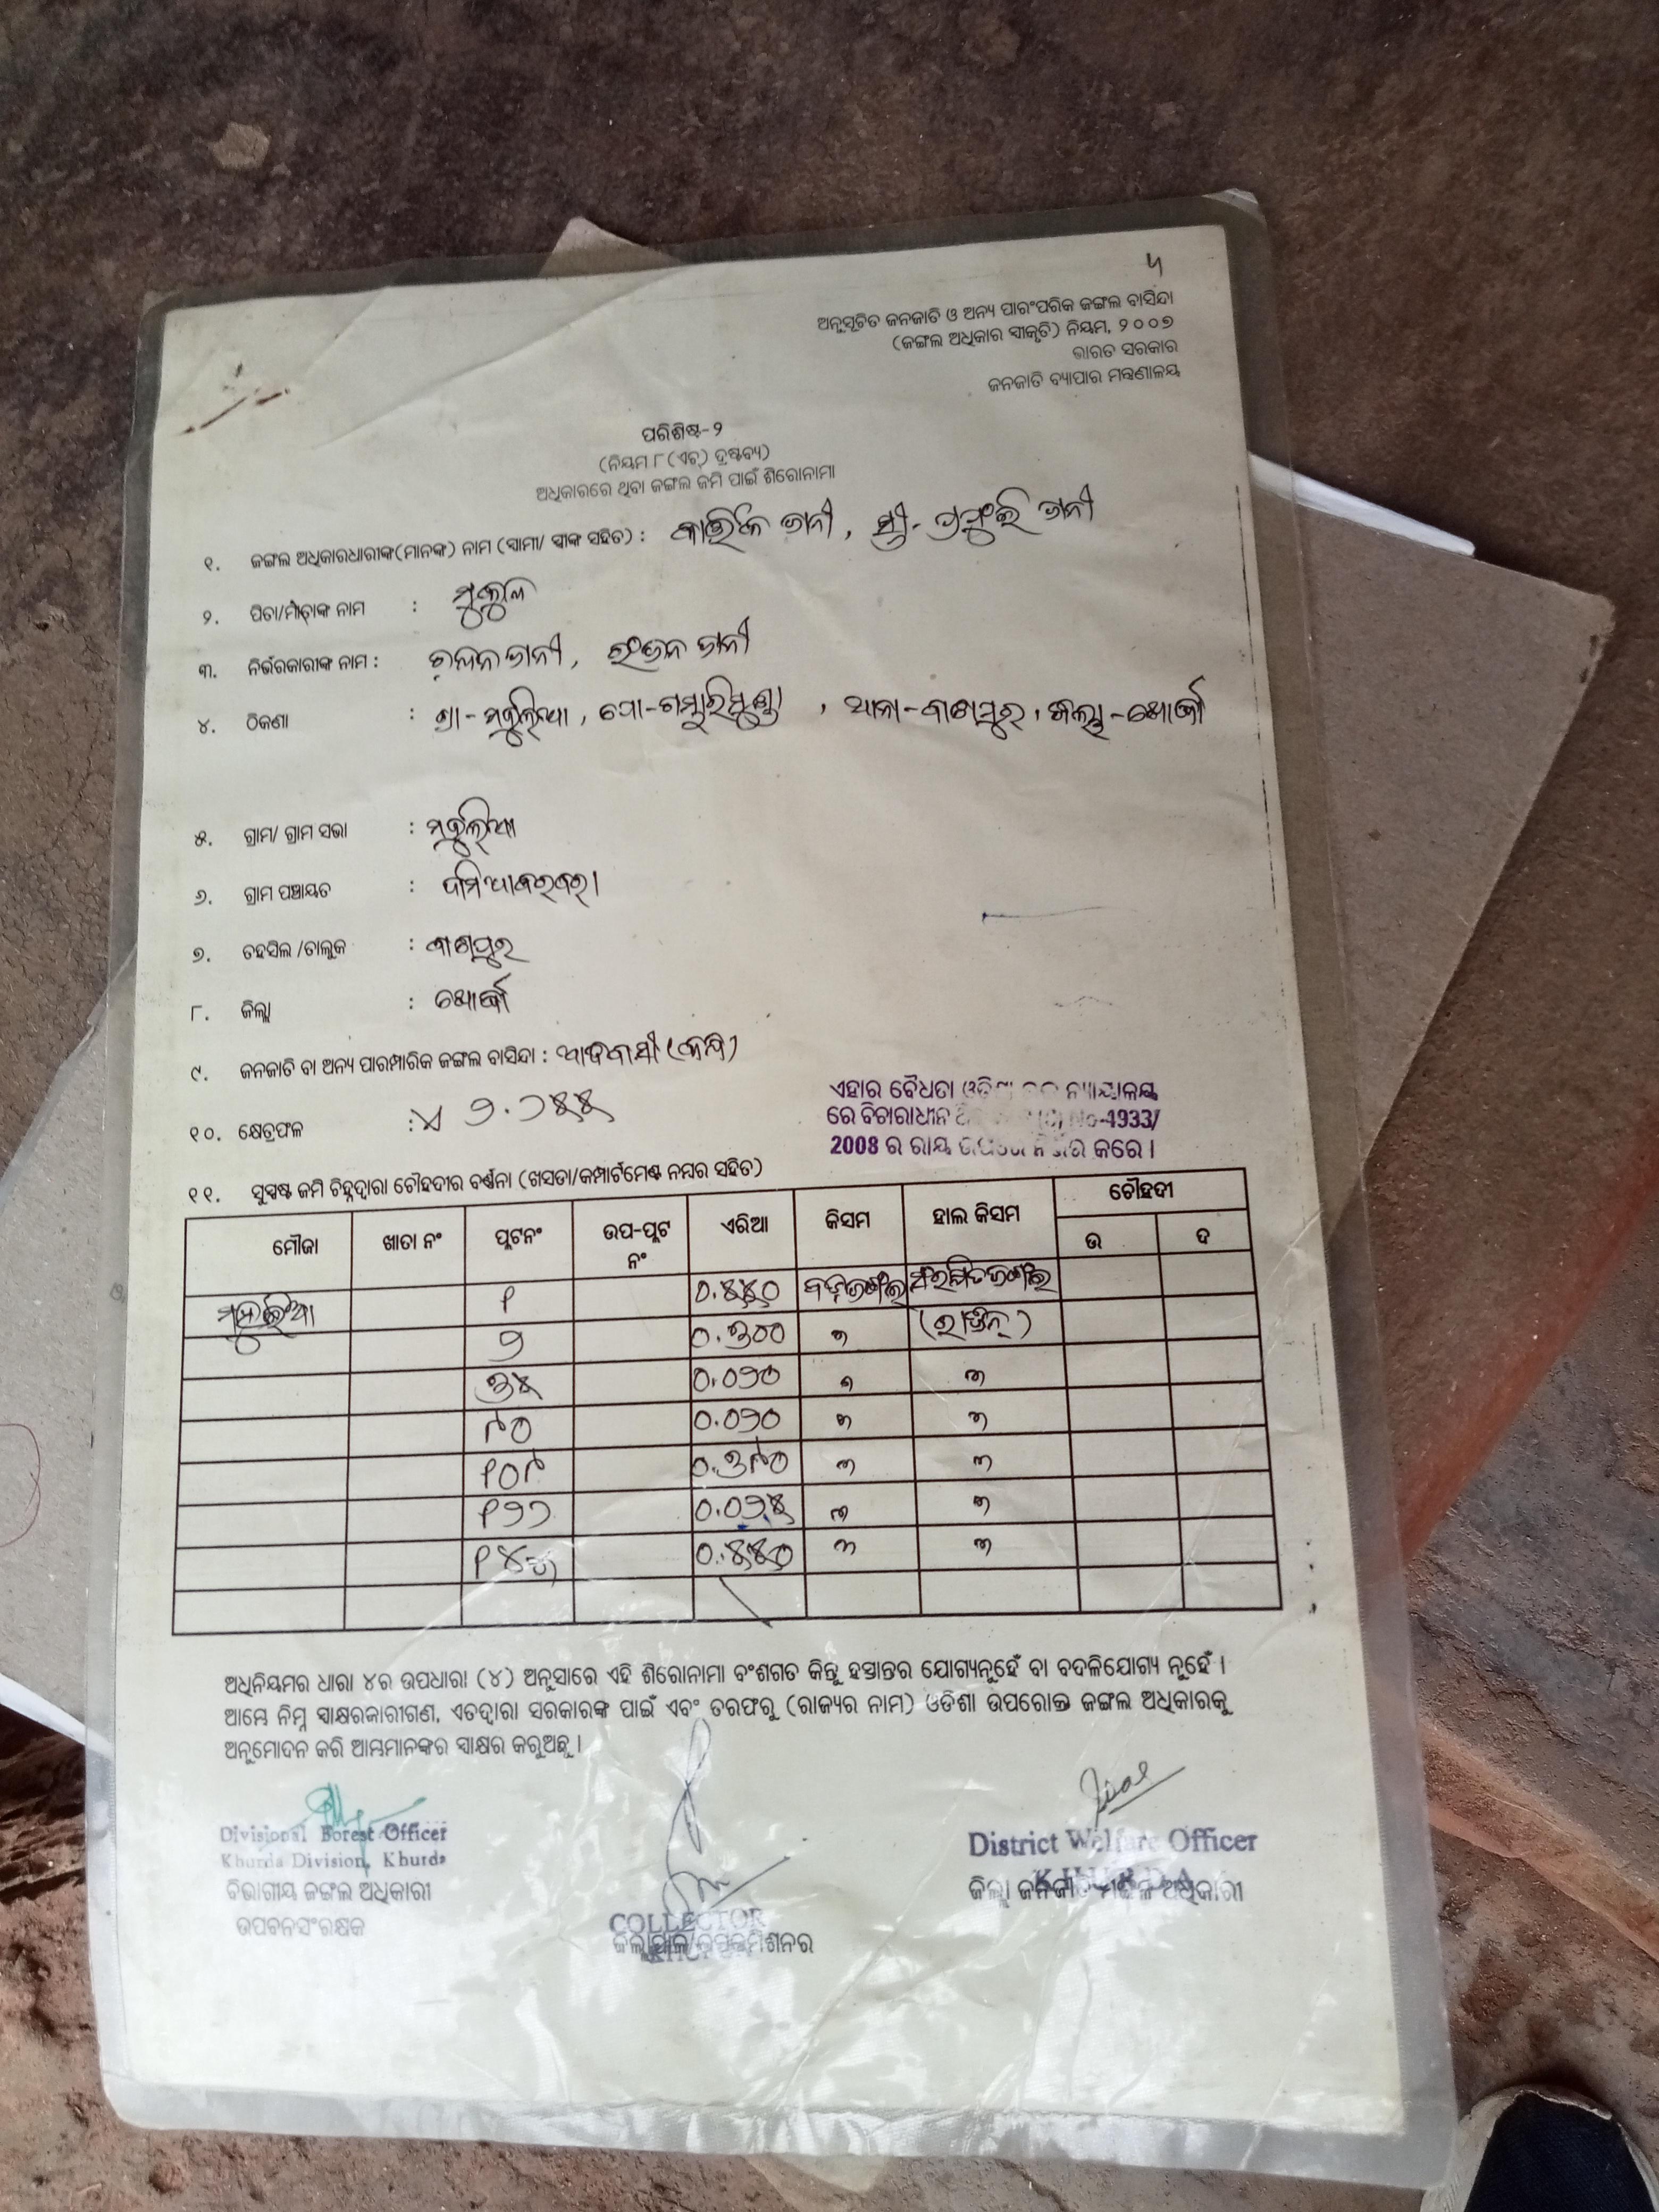 ୳
ଅନୁସୂଚିତ ଜନଜାତି ଓ ଅନ୍ୟ ପାରଂପରିକ ଜଙ୍ଗଲ ବାସିନ୍ଦା
(ଜଙ୍ଗଲ ଅଧିକାର ସ୍ୱୀକୃତି) ନିୟମ, ୨୦୦୭
ଭାରତ ସରକାର
ଜନଜାତି ବ୍ୟାପାର ମନ୍ତ୍ରଣାଳୟ
ପରିଶିଷ୍ଟ-୨
(ନିୟମ ୮(ଏଚ୍) ଦ୍ରଷ୍ଟବ୍ୟ)
ଅଧିକାରରେ ଥିବା ଜଙ୍ଗଲ ଜମି ପାଇଁ ଶିରୋନାମା
୧. ଜଙ୍ଗଲ ଅଧିକାରଧାରୀଙ୍କ(ମାନଙ୍କ) ନାମ (ସ୍ୱାମୀ/ ସ୍ତ୍ରୀଙ୍କ ସହିତ) : କାର୍ତ୍ତିକ ଜାନୀ, ସ୍ତ୍ରୀ- ଜାନୀ
୨. ପିତା/ମାତାଙ୍କ ନାମ : ମୁକୁଳ
୩. ନିର୍ଭରକାରୀଙ୍କ ନାମ : ଜାନୀ, ଜାନୀ
୪. ଠିକଣା : ଗ୍ରା- , ପୋ-ଗମ୍ଭାରିମୁଣ୍ଡା, ଥାନା-ବାଣପୁର, ଜିଲ୍ଲା-ଖୋର୍ଦ୍ଧା
୫. ଗ୍ରାମ/ ଗ୍ରାମ ସଭା :
୬. ଗ୍ରାମ ପଞ୍ଚାୟତ : ଦାମିଆବରବରା
୭. ତହସିଲ /ତାଲୁକ : ବାଣପୁର
୮. ଜିଲ୍ଲା : ଖୋର୍ଦ୍ଧା
୯. ଜନଜାତି ବା ଅନ୍ୟ ପାରମ୍ପାରିକ ଜଙ୍ଗଲ ବାସିନ୍ଦା : ଆଦିବାସୀ (କନ୍ଧ)
୧୦. କ୍ଷେତ୍ରଫଳ :
ଏହାର ବୈଧତା ଓଡିଶା ନ୍ୟାୟାଳୟ
ରେ ବିଚାରାଧୀନ No-4933/
2008 ର ରାୟ ଉପରେ ନିର୍ଭର କରେ ।
୧୧. ସୁସ୍ପଷ୍ଟ ଜମି ଚିହ୍ନଦ୍ୱାରା ଚୌହଦୀର ବର୍ଣ୍ଣନା (ଖସଡା/କମ୍ପାର୍ଟମେଣ୍ଟ ନମ୍ବର ସହିତ)
ମୌଜା ଖାତା ନଂ ପ୍ଲଟନଂ ଉପ-ପ୍ଲଟ ନଂ ଏରିଆ କିସମ ହାଲ କିସମ ଚୌହଦୀ
ଉ ଦ
୧
୨ ୦.୩୦୦ ୩
୩୫ ୦.୦୨୦ ୩ ୩
୯୦ ୦.୦୨୦ ୩ ୩
୧୦୯ ୦.୩୯୦ ୩ ୩
୧୨୨ ୦.୦୨୫ ୩ ୩
୩ ୩
ଅଧିନିୟମର ଧାରା ୪ର ଉପଧାରା (୪) ଅନୁସାରେ ଏହି ଶିରୋନାମା ବଂଶଗତ କିନ୍ତୁ ହସ୍ତାନ୍ତର ଯୋଗ୍ୟନୁହେଁ ବା ବଦଳିଯୋଗ୍ୟ ନୁହେଁ ।
ଆମ୍ଭେ ନିମ୍ନ ସ୍ୱାକ୍ଷରକାରୀଗଣ, ଏତଦ୍ୱାରା ସରକାରଙ୍କ ପାଇଁ ଏବଂ ତରଫରୁ (ରାଜ୍ୟର ନାମ) ଓଡିଶା ଉପରୋକ୍ତ ଜଙ୍ଗଲ ଅଧିକାରକୁ
ଅନୁମୋଦନ କରି ଆମ୍ଭମାନଙ୍କର ସ୍ୱାକ୍ଷର କରୁଅଛୁ ।
Divisional Borest Officer
Khurda Division, Khurda
ବିଭାଗୀୟ ଜଙ୍ଗଲ ଅଧିକାରୀ
ଉପବନସଂରକ୍ଷକ
COLLECTOR
ଜିଲ୍ଲାପାଳ/ଡେପୁଟିକମିଶନର
District Welfare Officer
KHURDA
ଜିଲ୍ଲା ଜନଜାତି ମଙ୍ଗଳ ଅଧିକାରୀ